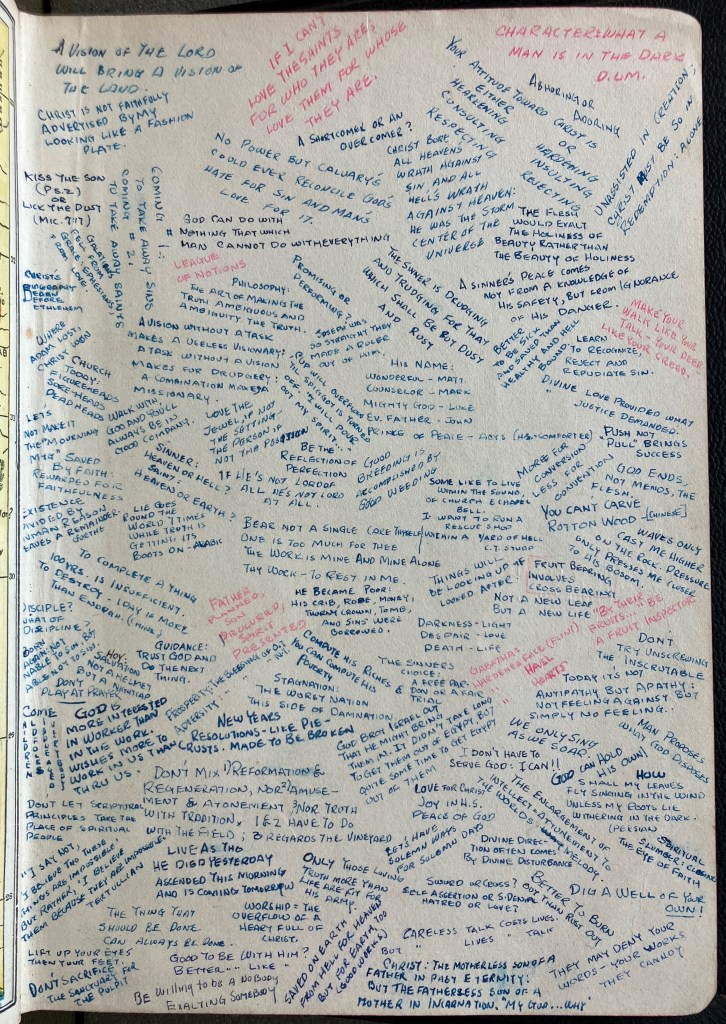 A VISION OF THE LORD
WILL BRING A VISION OF
THE LAND.
IF I CAN'T
LOVE THE SAINTS
FOR WHO THEY ARE,
LOVE THEM FOR WHOSE
THEY ARE.
CHARACTER: WHAT A
MAN IS IN THE DARK
D.L.M.
CHRIST IS NOT FAITHFULLY
ADVERTISED BY MY
LOOKING LIKE A FASHION
PLATE.
YOUR ATTITUDE TOWARD CHRIST IS
EITHER
HEARKENING OR HARDENING
CONSULTING INSULTING
RESPECTING REJECTING
ABHORING OR
ADORING
UNASSISTED IN CREATION;
CHRIST MUST BE SO IN
REDEMPTION: ALONE
A SHORTCOMER OR AN
OVERCOMER?
NO POWER BUT CALVARY'S
COULD EVER RECONCILE GOD'S
HATE FOR SIN AND MAN'S
LOVE FOR IT.
CHRIST BORE
ALL HEAVENS
WRATH AGAINST
SIN AND ALL
HELL'S WRATH
AGAINST HEAVEN:
HE WAS THE STORM
CENTER OF THE
UNIVERSE
KISS THE SON
(PS. 2)
OR
LICK THE DUST
(MIC. 7:17)
COMING # 1:
TO TAKE AWAY SINS
COMING # 2,
TO TAKE AWAY SAINTS
GOD CAN DO WITH
NOTHING THAT WHICH
MAN CANNOT DO WITH EVERYTHING
THE FLESH
WOULD EXALT
THE HOLINESS OF
BEAUTY RATHER THAN
THE BEAUTY OF HOLINESS
LEAGUE
OF NOTIONS
PHILOSOPHY:
THE ART OF MAKING THE
TRUTH AMBIGUOUS AND
AMBIGUITY THE TRUTH.
PROMISING OR
PERFORMING?
THE SINNER IS DRUDGING
AND TRUDGING FOR THAT
WHICH SHALL BE BUT DUSY
AND RUSY
A SINNER'S PEACE COMES
NOT FROM A KNOWLEDGE OF
HIS SAFETY, BUT FROM IGNORANCE
OF HIS DANGER.
MAKE YOUR
WALK LIKE YOUR
TALK - YOUR DEED
LIKE YOUR CREED.
CHRISTS
BIOGRAPHY
BEGAN
BEFORE
BETHLEHEM
A VISION WITHOUT A TASK
MAKES A USELESS VISIONARY:
A TASK WITHOUT A VISION
MAKES FOR DRUDGERY:
A COMBINATION MAKES A
MISSIONARY.
JOSEPH WAS
SO STRAIGHT THEY
MADE A RULER
OUT OF HIM.
BETTER
TO BE SICK
AND SAVED THAN
HEALTHY AND HELL
BOUND.
LEARN
TO RECOGNIZE,
REJECT AND
REPUDIATE SIN.
WHERE
ADAM LOST,
CHRIST WON
CHURCH
TODAY:
FIGUREHEADS
SOREHEADS
DEADHEADS
HIS NAME:
WONDERFUL - MATT.
COUNSELOR - MARK
MIGHTY GOD - LUKE
EV. FATHER - JOHN
PRINCE OF PEACE - ACTS (H.S. = COMFORTER)
DIVINE LOVE PROVIDED WHAT
JUSTICE DEMANDED.
PUSH NOT
"PULL" BRINGS
SUCCESS
WALK WITH
GOD AND YOU'LL
ALWAYS BE IN
GOOD COMPANY.
LOVE THE
JEWEL, IF NOT
THE SETTING.
THE PERSON IF
NOT THE POSITION
LETS
NOT MAKE IT
THE "MOURNING
MTG"
SAVED
BY FAITH:
REWARDED FOR
FAITHFULNESS
SINNER:
HEAVEN OR HELL?
SAINT:
HEAVEN OR EARTH?
BE THE
REFLECTION OF
PERFECTION
GOOD
BREEDING IS
ACCOMPLISHED BY
GOOD WEEDING
IF HE'S NOT LORD OF
ALL HE'S NOT LORD
AT ALL.
SOME LIKE TO LIVE
WITHIN THE SOUND,
OF CHURCH & CHAPEL
BELL.
I WANT TO RUN A
RESCUE SHOP
WITHIN A YARD OF HELL
C.T. STUDD
MORE FOR
CONVERSION
LESS FOR
CONVENTION
GOD ENDS,
NOT MENDS, THE
FLESH.
YOU CAN'T CARVE
ROTTON WOOD - [CHINESE]
A LIE GOES
ROUND THE
WORLD 7 TIMES
WHILE TRUTH IS
GETTING ITS
BOOTS ON - ARABIC
BEAR NOT A SINGLE CARE THYSELF
ONE IS TOO MUCH FOR THEE
THE WORK IS MINE AND MINE ALONE
THY WORK - TO REST IN ME.
WAVES ONLY
CAST ME HIGHER
ON THE ROCK. PRESSURE
ONLY PRESSES ME CLOSER
TO HIS BOSOM.
TO COMPLETE A THING
100 YRS IS INSUFFICIENT.
TO DESTROY - 1 DAY IS MORE
THAN ENOUGH. (CHINA)
FATHER
PLANNED,
SON
PROCURED,
SPIRIT
PRESENTED
HE BECAME POOR:
HIS CRIB, ROBE, MONEY,
THORNY CROWN, TOMB,
AND SINS WERE
BORROWED.
THINGS WILL
BE LOOKING UP IF
LOOKED AFTER!
FRUIT BEARING
INVOLVES
CROSS BEARING
NOT A NEW LEAF
BUT A NEW LIFE
DARKNESS - LIGHT
DESPAIR - LOVE
DEATH - LIFE
"BY THEIR
FRUITS..." BE
A FRUIT INSPECTOR
DISCIPLE?
WHAT OF
DISCIPLINE?
GUIDANCE:
TRUST GOD AND
DO THE NEXT
THING.
SALVATION
NOT A HELPER
BUT A
DON'T
PLAY AT PRAYER
COMPUTE HIS RICHES &
YOU CAN COMPUTE HIS
POVERTY
THE SINNERS
CHOICE:
A FREE PARDON OR A FAIR
TRIAL
DON'T
TRY UNSCREWING
THE INSCRUTABLE
TODAY IT'S NOT
ANTIPATHY BUT APATHY:
NOT FEELING AGAINST, BUT
SIMPLY NO FEELING.
COME
GOD IS
MORE INTERESTED
IN WORKER THAN
IN THE WORK.
WISHES MORE TO
WORK IN US THAN
THRU US.
STAGNATION:
THE WORST NATION
THIS SIDE OF DAMNATION
NEW YEARS
RESOLUTIONS - LIKE PIE-
CRUSTS. MADE TO BE BROKEN
GOD BROT ISRAEL OUT
THAT HE MIGHT BRING
THEM IN. IT DIDN'T TAKE LONG
TO GET THEM OUT OF EGYPT BUT
QUITE SOME TIME TO GET EGYPT
OUT OF THEM
WE ONLY SING
AS WE SOAR.
MAN PROPOSES
WHAT GOD DISPOSES
I DON'T HAVE TO
SERVE GOD: I CAN!!
GOD CAN HOLD
HIS OWN!
HOW
SHALL MY LEAVES
FLY SINGING IN THE WIND
UNLESS MY ROOTS LIE
WITHERING IN THE DARK.
(PERSIAN)
DON'T MIX 1) REFORMATION &
REGENERATION, NOR 2) AMUSE-
MENT & ATONEMENT 3) NOR TRUTH
WITH TRADITION. 1 & 2 HAVE TO DO
WITH THE FIELD; 3 REGARDS THE VINEYARD
LOVE FOR CHRIST
JOY IN H.S.
PEACE OF GOD
THE ENLARGEMENT OF
INTELLECT = ATTUNEMENT TO
THE WORLDS MELODY.
DONT LET SCRIPTURAL
PRINCIPLES TAKE THE
PLACE OF SPIRITUAL
PEOPLE
LET'S HAVE
SOLEMN WAYS
FOR SOLEMN DAYS
DIVINE DIREC-
TION OFTEN COMES
BY DIVINE DISTURBANCE
SPIRITUAL
SLUMBER: CLOSING
THE EYE OF FAITH
"I SAY NOT,
'I BELIEVE THO THESE
THINGS ARE IMPOSSIBLE'
BUT RATHER, 'I BELIEVE
THEM BECAUSE THEY ARE IMPOSSIBLE'"
TERTULLIAN
LIVE AS THO
HE DIED YESTERDAY
ASCENDED THIS MORNING
AND IS COMING TOMORROW
ONLY THOSE LOVING
TRUTH MORE THAN
LIFE ARE FIT FOR
HIS ARMY.
SWORD OR CROSS?
SELF ASSERTION OR S. DENIAL
HATRED OR LOVE?
BETTER TO BURN
OUT THAN RUST OUT
DIG A WELL OF YOUR
OWN!
THE THING THAT
SHOULD BE DONE
CAN ALWAYS BE DONE.
WORSHIP = THE
OVERFLOW OF A
HEART FULL OF
CHRIST.
CARELESS TALK COSTS LIVES.
BUT " LIVES " TALK
LIFT UP YOUR EYES
THEN YOUR FEET.
GOOD TO BE WITH HIM?
BETTER " " LIKE "
SAVED ON EARTH
FROM HELL FOR HEAVEN
BUT FOR EARTH, TOO
(GOOD WORKS)
THEY MAY DENY YOUR
WORDS - YOUR WORKS
THEY CANNOT
DON'T SACRIFICE
THE SANCTUARY FOR
THE PULPIT
BE WILLING TO BE A NOBODY
EXALTING SOMEBODY
CHRIST: THE MOTHERLESS SON OF A
FATHER IN PAST ETERNITY:
BUT THE FATHERLESS SON OF A
MOTHER IN INCARNATION. "MY GOD...WHY"